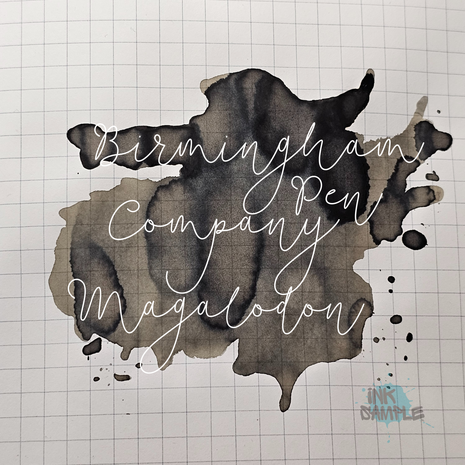 Birmingham
Pen
Company
Magalodon
INK
SAMPLE